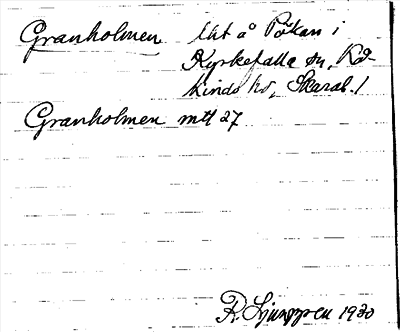 Granholmen lht å Pökan i
Kyrkefalla sn, Kå-
kinds hd, Skarab. l
Granholmen mtl 27
R. Ljunggren 1930